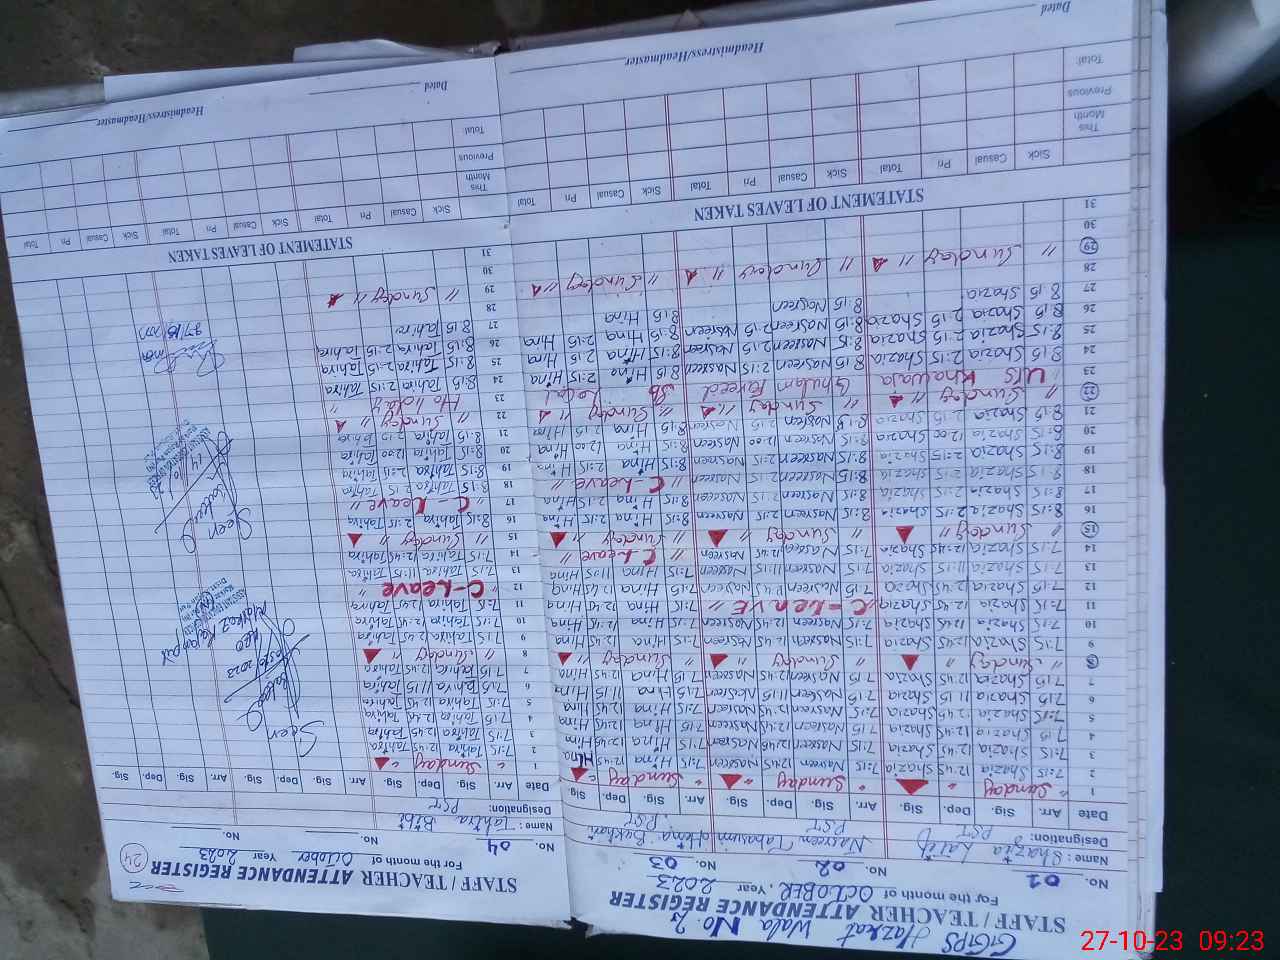 GGPS Hazrat Wala No. 2
STAFF / TEACHER ATTENDANCE REGISTER
For the month of OCTOBER, Year 2023
No. 01 No. 02 No. 03
Name: Shazia Latif Nasreen Tabasum Hina Bukhari
Designation: PST PST PST
Date Arr. Sig. Dep. Sig. Arr. Sig. Dep. Sig. Arr. Sig. Dep. Sig.
1 " Sunday " " Sunday " " Sunday "
2 7:15 Shazia 12:45 Shazia 7:15 Nasreen 12:45 Nasreen 7:15 Hina 12:45 Hina
3 7:15 Shazia 12:45 Shazia 7:15 Nasreen 12:45 Nasreen 7:15 Hina 12:45 Hina
4 7:15 Shazia 12:45 Shazia 7:15 Nasreen 12:45 Nasreen 7:15 Hina 12:45 Hina
5 7:15 Shazia 12:45 Shazia 7:15 Nasreen 12:45 Nasreen 7:15 Hina 12:45 Hina
6 7:15 Shazia 11:15 Shazia 7:15 Nasreen 11:15 Nasreen 7:15 Hina 11:15 Hina
7 7:15 Shazia 12:45 Shazia 7:15 Nasreen 12:45 Nasreen 7:15 Hina 12:45 Hina
8 " Sunday " " Sunday " " Sunday "
9 7:15 Shazia 12:45 Shazia 7:15 Nasreen 12:45 Nasreen 7:15 Hina 12:45 Hina
10 7:15 Shazia 12:45 Shazia 7:15 Nasreen 12:45 Nasreen 7:15 Hina 12:45 Hina
11 7:15 Shazia 12:45 Shazia " C-LeaVE " 7:15 Hina 12:45 Hina
12 7:15 Shazia 12:45 Shazia 7:15 Nasreen 12:45 Nasreen 7:15 Hina 12:45 Hina
13 7:15 Shazia 11:15 Shazia 7:15 Nasreen 11:15 Nasreen 7:15 Hina 11:15 Hina
14 7:15 Shazia 12:45 Shazia 7:15 Nasreen 12:45 Nasreen " C-Leave "
15 " Sunday " " Sunday " " Sunday "
16 8:15 Shazia 2:15 Shazia 8:15 Nasreen 2:15 Nasreen 8:15 Hina 2:15 Hina
17 8:15 Shazia 2:15 Shazia 8:15 Nasreen 2:15 Nasreen 8:15 Hina 2:15 Hina
18 8:15 Shazia 2:15 Shazia 8:15 Nasreen 2:15 Nasreen " C-Leave "
19 8:15 Shazia 2:15 Shazia 8:15 Nasreen 2:15 Nasreen 8:15 Hina 2:15 Hina
20 8:15 Shazia 12:00 Shazia 8:15 Nasreen 12:00 Nasreen 8:15 Hina 12:00 Hina
21 8:15 Shazia 2:15 Shazia 8:15 Nasreen 2:15 Nasreen 8:15 Hina 2:15 Hina
22 " Sunday " " Sunday " " Sunday "
23 URS Khawaja Ghulam Fareed Local
24 8:15 Shazia 2:15 Shazia 8:15 Nasreen 2:15 Nasreen 8:15 Hina 2:15 Hina
25 8:15 Shazia 2:15 Shazia 8:15 Nasreen 2:15 Nasreen 8:15 Hina 2:15 Hina
26 8:15 Shazia 2:15 Shazia 8:15 Nasreen 2:15 Nasreen 8:15 Hina 2:15 Hina
27 8:15 Shazia 8:15 Nasreen 8:15 Hina
28
29 " Sunday " " Sunday " " Sunday "
30
31
STATEMENT OF LEAVES TAKEN
Sick Casual Pri Total Sick Casual Pri Total Sick Casual Pri Total
This Month
Previous
Total
Headmistress/Headmaster
Dated
24
STAFF / TEACHER ATTENDANCE REGISTER
For the month of October Year 2023
No. 04 No. No.
Name: Tahira Bibi
Designation: PST
Arr. Sig. Dep. Sig. Arr. Sig. Dep. Sig. Arr. Sig. Dep. Sig.
1 " Sunday "
2 7:15 Tahira 12:45 Tahira
3 7:15 Tahira 12:45 Tahira
4 7:15 Tahira 12:45 Tahira
5 7:15 Tahira 12:45 Tahira
6 7:15 Tahira 11:15 Tahira
7 7:15 Tahira 12:45 Tahira
8 " Sunday "
9 7:15 Tahira 12:45 Tahira
10 7:15 Tahira 12:45 Tahira
11 7:15 Tahira 12:45 Tahira
12 " C-Leave "
13 7:15 Tahira 11:15 Tahira
14 7:15 Tahira 12:45 Tahira
15 " Sunday "
16 8:15 Tahira 2:15 Tahira
17 " C-Leave "
18 8:15 Tahira 2:15 Tahira
19 8:15 Tahira 2:15 Tahira
20 8:15 Tahira 12:00 Tahira
21 8:15 Tahira 2:15 Tahira
22 " Sunday "
23 " Holiday "
24 8:15 Tahira 2:15 Tahira
25 8:15 Tahira 2:15 Tahira
26 8:15 Tahira 2:15 Tahira
27 8:15 Tahira
28
29 " Sunday "
30
31
Seen
Seen
STATEMENT OF LEAVES TAKEN
Sick Casual Pri Total Sick Casual Pri Total Sick Casual Pri Total
This Month
Previous
Total
Headmistress/Headmaster
Dated
27-10-23 09:23